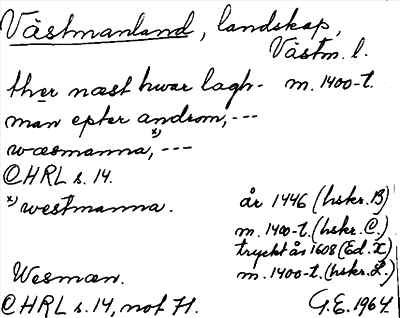 Västmanland, landskap,
Västm. l.
ther næst hwar lagh- m. 1400-t.
man epter androm, ---
wæsmanna,x) ---
CHRL s. 14.
x) westmanna. år 1446 (hskr. B)
m. 1400-t. (hskr. C.)
tryckt år 1608 (Ed. X)
Wesmæn. m. 1400-t. (hskr. L.)
CHRL s. 14, not 71. G.E. 1964.